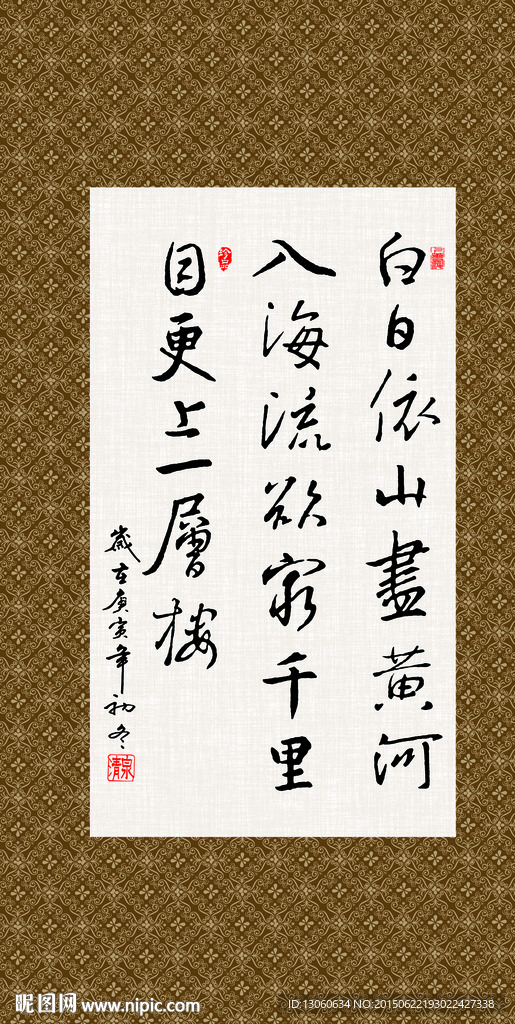 白日依山盡黃河
入海流欲窮千里
目更上一層樓
歲在庚寅年初冬
昵图网 www.nipic.com
ID:13060634 NO:20150622193022427338